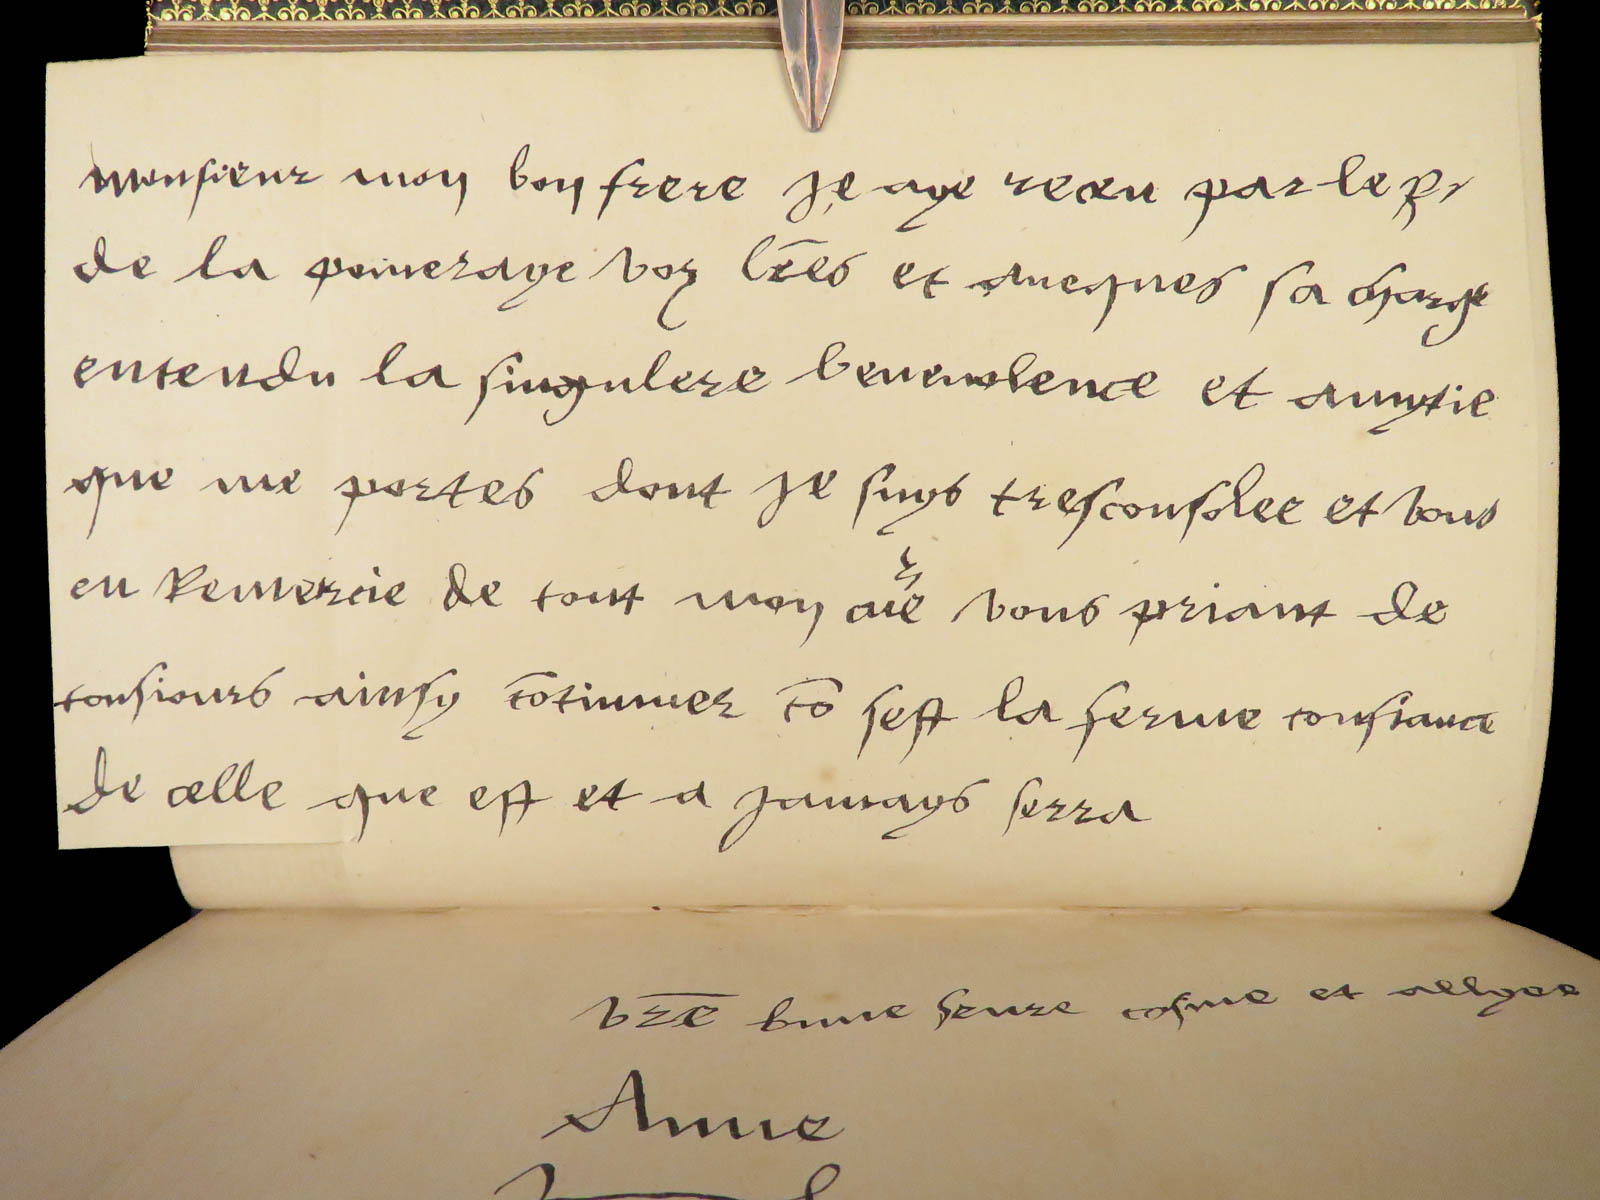 Monsieur mon bon frere Je aye receu par le
de la pomeraye voz lres et avecques sa charge
entendu la singulere benevolence et amytie
que me portes dont Je suys tresconsolee et vous
en Remercie de tout mon cue vous priant de
tousiours ainsy cotinuer co sest la ferme confiance
de celle que est et a jamays serra
vre bune seure cosine et allyee
Anne